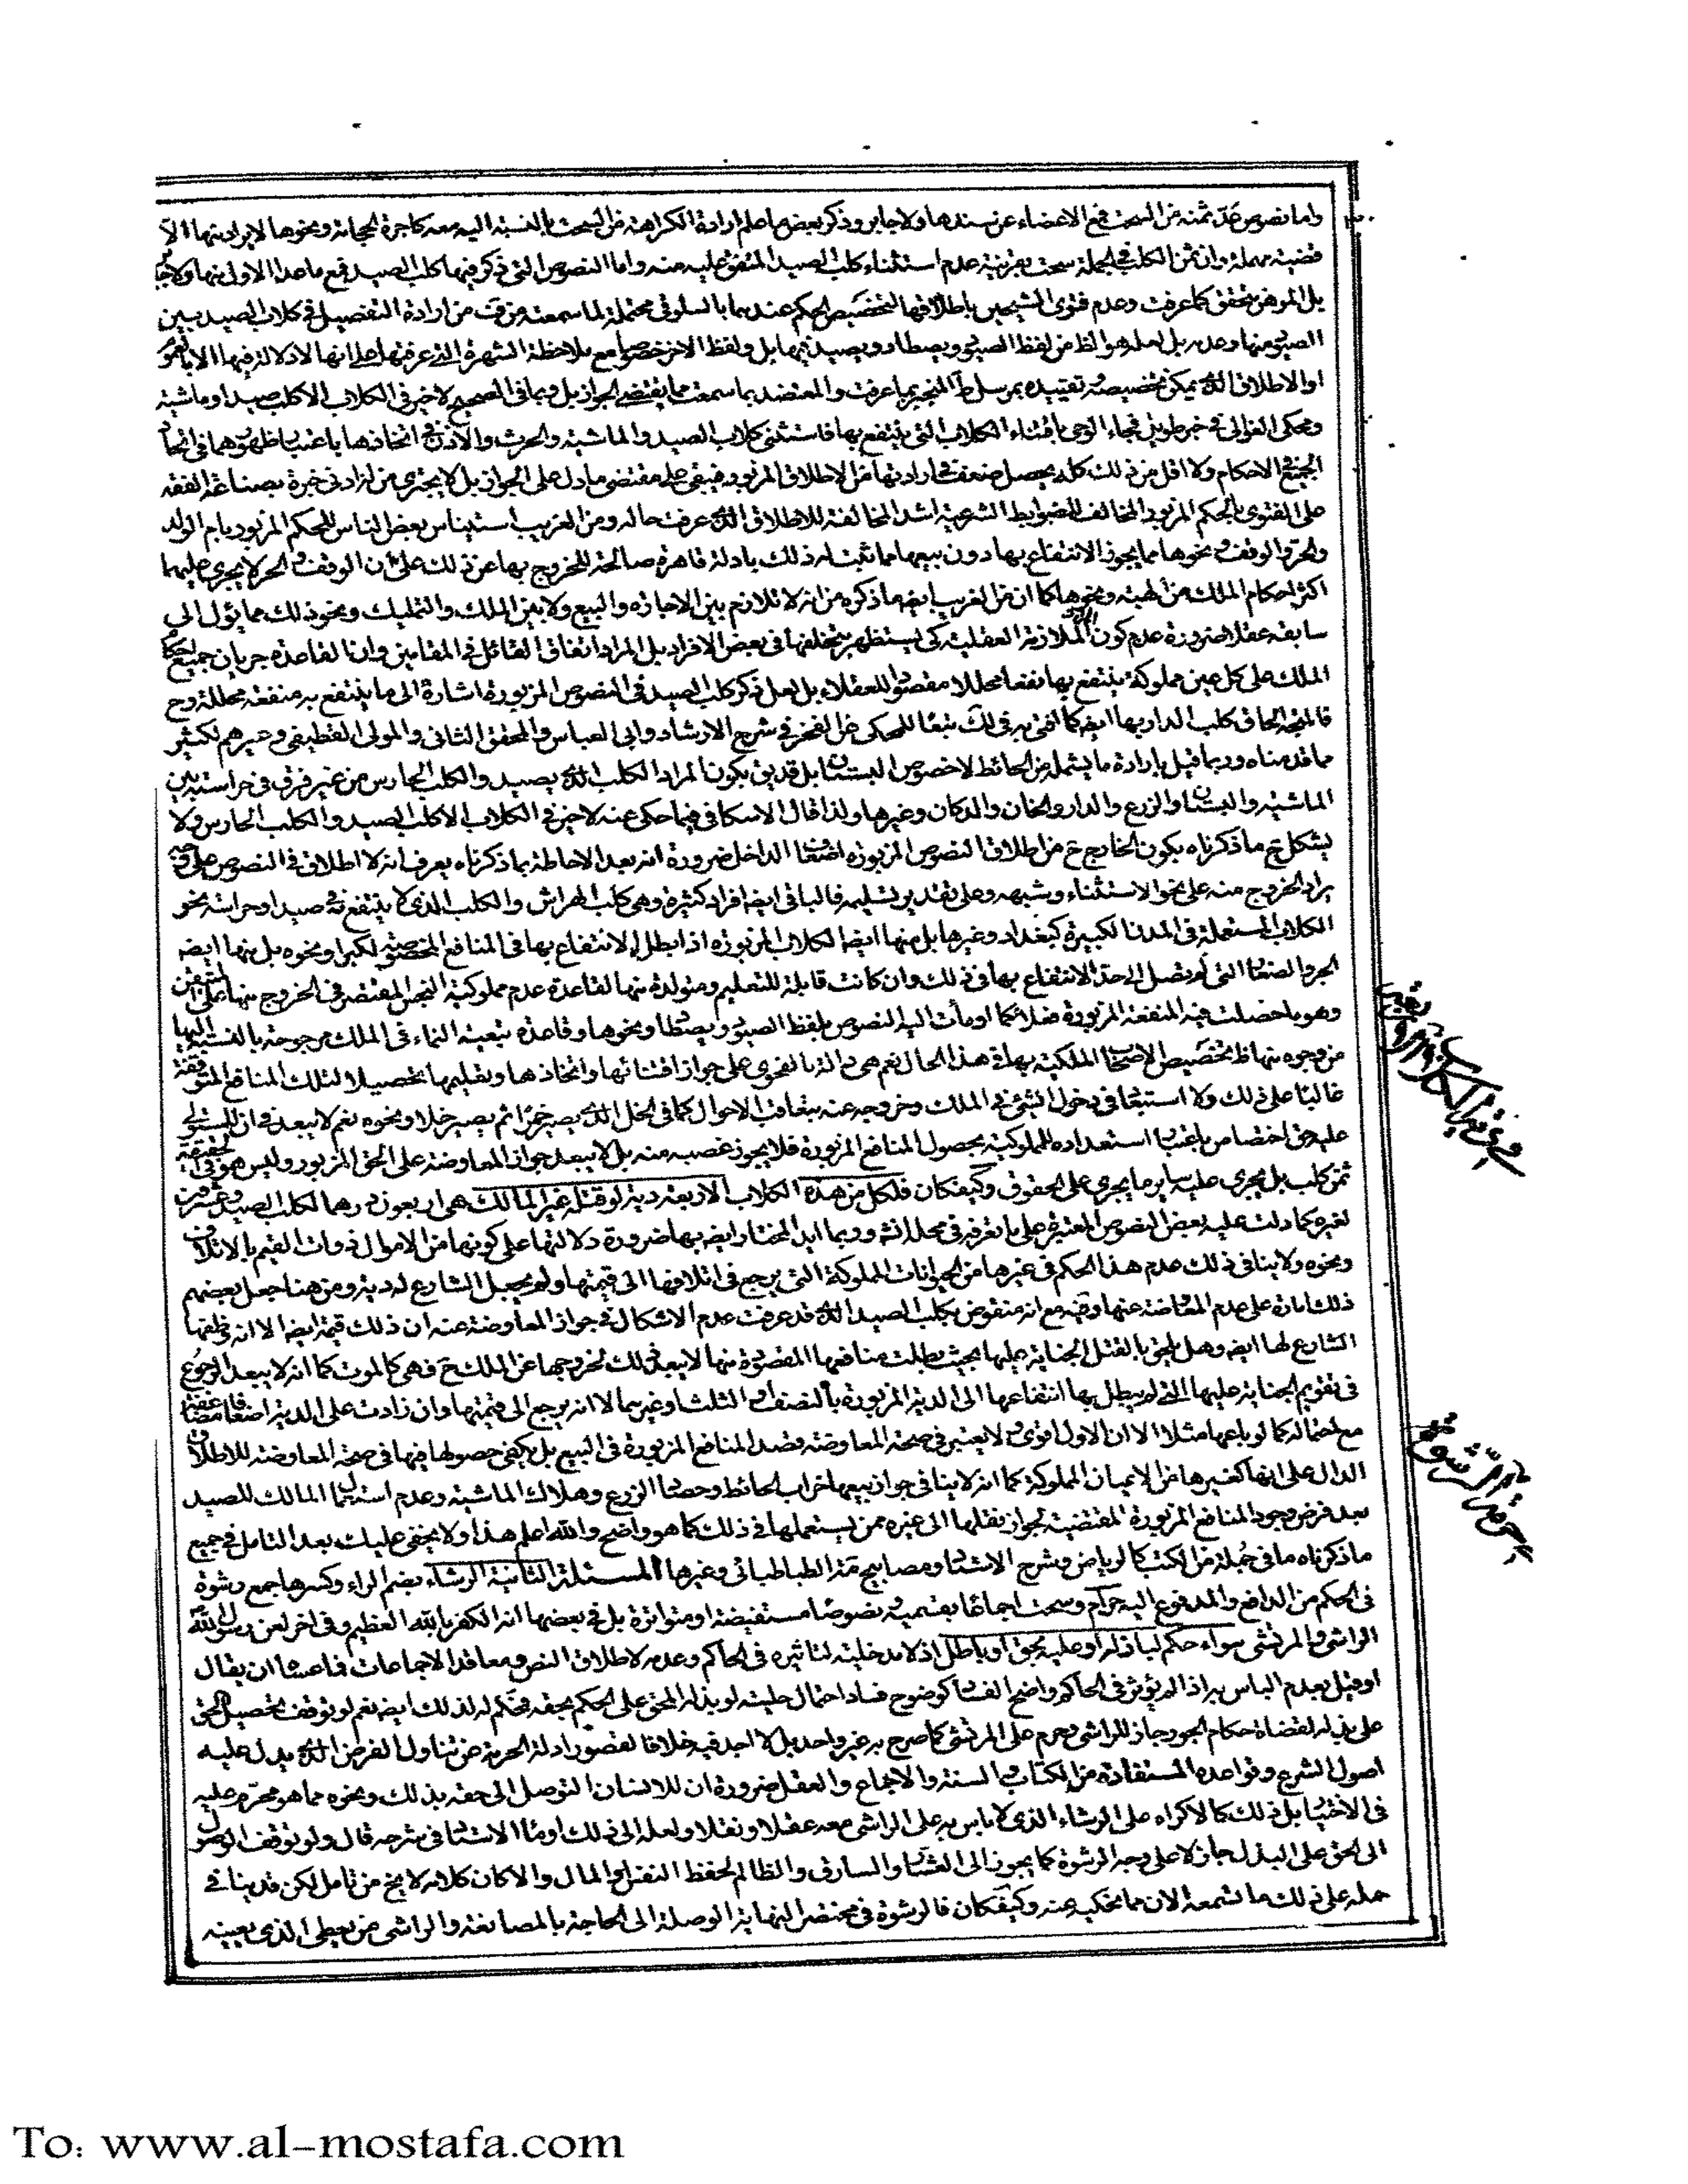 واما نصوص عد ثمنه من السحت فمع الاغضاء عن سندها ولا جابر وذكر بعض ما علم ارادة الكراهة من السحت بالنسبة اليه معه كاجرة الحجامة ونحوها لا يراد منها الا
قضية مهملة وان ثمن الكلب في الجملة سحت بقرينة عدم استثناء كلب الصيد المتفق عليه منه واما النصوص التي ذكر فيها كلب الصيد فمع ما عدا الاول منها ولا
بل الموهن متحقق كما عرفت وعدم فتوى الشيخين باطلاقها لتخصيص الحكم عندهما بالسلوقي محتملة لما سمعته من ارادة التفصيل في كلاب الصيد بين
الصيود منها وعدمه بل لعله هو الظ من لفظ الصيود ويصطاد ويصيد فيها بل ولفظ الاخر خصوصا مع ملاحظة الشهرة التي عرفتها على انها لا دلالة فيها الا بالمفهوم
او الاطلاق الذي يمكن تخصيصه وتقييده بمرسل ط المنجبر بما عرفت والمعتضد بما سمعت مما يقتضي الجواز بل وبما في الصحيح لا خير في الكلاب الا كلب صيد او ماشية
وحكى الغوالي في خبر طويل فجاء الوحي باقتناء الكلاب التي ينتفع بها فاستثنى كلاب الصيد والماشية والحرث والاذن في اتخاذها باعتبار ظهورهما في
الجميع في الاحكام ولا اقل من ذلك كله يحصل ضعف في ارادتها من الاطلاق المزبور فيبقى على مقتضى ما دل على الجواز بل لا يجترئ من له ادنى خبرة بصناعة الفقه
على الفتوى بالحكم المزبور المخالف للضوابط الشرعية اشد المخالفة للاطلاق الذي عرفت حاله ومن الغريب استيناس بعض الناس للحكم المزبور بام الولد
والحر والوقف ونحوها مما يجوز الانتفاع بها دون بيعها مما ثبت له ذلك بادلة قاهرة صالحة للخروج بها عن ذلك على ان الوقف والحر لا يجري عليهما
اكثر احكام الملك من الهبة ونحوها كما ان من الغريب ايضه ما ذكره من انه لا تلازم بين الاجازه والبيع ولا بين الملك والتمليك ونحو ذلك مما يؤل الى
سابقه عقلا ضرورة عدم كون الملازمة العقلية كي يستظهر بتخلفها في بعض الافراد بل المراد اتفاق القائل في المقامين وان القاعدة جريان جميع احكام
الملك على كل عين مملوكة ينتفع بها نفعا محللا مقصودا للعقلاء بل لعل ذكر كلب الصيد في النصوص المزبورة اشارة الى ما ينتفع به منفعة محللة وح
فالمتجه الحاق كلب الدار بها ايضه كما افتى به في لك تبعا للمحكى عن الفخر في شرح الارشاد وابي العباس والمحقق الثاني والمولى القطيفي وغيرهم لكثير
مما قدمناه وربما قيل بارادة ما يشمله من الحائط لا خصوص البستان بل قد يق بكون المراد الكلب الذي يصيد والكلب الحارس من غير فرق في حراسته بين
الماشية والبستان والزرع والدار والخان والدكان وغيرها ولذا قال الاسكافي فيما حكى عنه لا خير في الكلاب الا كلب الصيد والكلب الحارس ولا
يشكل ح ما ذكرناه بكون الخارج ح من اطلاق النصوص المزبورة اضعاف الداخل ضرورة انه بعد الاحاطة بما ذكرناه يعرف انه لا اطلاق في النصوص على وجه
يراد الخروج منه على نحو الاستثناء وشبهه وعلى تقدير تسليمه فالباقي ايضه افراد كثيرة وهي كلب الهراش والكلب الذي لا ينتفع به في صيد او حراسة نحو
الكلاب المستعملة في المدن الكبيرة كبغداد وغيرها بل منها ايضه الكلاب المزبورة اذا بطل الانتفاع بها في المنافع المخصوصة لكبر او نحوه بل منها ايضه
الجرو الصغار التي لم تصل الى حد الانتفاع بها في ذلك وان كانت قابلة للتعليم ومتولدة منها لقاعدة عدم مملوكية النجس المقتصر في الخروج منها على المتيقن
وهو ما حصلت فيه المنفعة المزبورة فعلا كما اومأت اليه النصوص بلفظ الصيود ويصطاد ونحوها وقاعدة تبعية النماء في الملك مرجوحة بالنسبة اليها
من وجوه منها ظ تخصيص الاصحاب الملكية بها في هذا الحال نعم هي دالة بالفحوى على جواز اقتنائها واتخاذها وتعليمها تحصيلا لتلك المنافع المتوقفة
غالبا على ذلك ولا استبعاد في دخول الشئ في الملك وخروجه عنه بتعاقب الاحوال كما في الخل الذي يصير خمرا ثم يصير خلا ونحوه نعم لا يبعد في ان للمستولي
عليه حق اختصاص باعتبار استعداده للمملوكية بحصول المنافع المزبورة فلا يجوز غصبه منه بل لا يبعد جواز المعاوضة على الحق المزبور وليس هو في الحقيقة
ثمن كلب بل يجري عليه ساير ما يجري على الحقوق وكيف كان فلكل من هذه الكلاب الاربعة دية لو قتله غير المالك هي اربعون درهما لكلب الصيد وعشرون
لغيره كما دلت عليه بعض النصوص المعتبرة على ما تعرفه في محله انش وربما ايد المختار ايضه بها ضرورة دلالتها على كونها من الاموال ذوات القيم بالاتلاف
ونحوه ولا ينافي ذلك عدم هذا الحكم في غيرها من الحيوانات المملوكة التي يرجع في اتلافها الى قيمتها ولم يجعل الشارع له دية ومن هنا جعل بعضهم
ذلك امارة على عدم المعاوضة عنها وفيه مع انه منقوض بكلب الصيد الذي قد عرفت عدم الاشكال في جواز المعاوضة عنه ان ذلك قيمة ايضه الا انه وظفها
الشارع لها ايضه وهل يلحق بالقتل الجناية عليها بحيث بطلت منافعها المقصودة منها لا يبعد ذلك لخروجها عن الملك ح فهي كالموت كما انه لا يبعد الرجوع
في تقويم الجناية عليها التي لم يبطل بها انتفاعها الى الدية المزبورة بالنصف او الثلث او غيرهما لا انه يرجع الى قيمتها وان زادت على الدية اضعافا مضاعفة
مع احتماله كما لو باعها مثلا الا ان الاول اقوى ولا يعتبر في صحة المعاوضة قصد المنافع المزبورة في البيع بل يكفي حصولها فيها في صحة المعاوضة للاطلاق
الدال على انها كغيرها من الاعيان المملوكة كما انه لا ينافي جواز بيعها خراب الحائط وحصاد الزرع وهلاك الماشية وعدم استعمال المالك للصيد
بعد فرض وجود المنافع المزبورة المقتضية لجواز نقلها الى غيره ممن يستعملها في ذلك كما هو واضح والله اعلم هذا ولا يخفى عليك بعد التامل في جميع
ما ذكرناه ما في جملة من الكتب كالرياض وشرح الاستاد ومصابيح العلامة الطباطبائي وغيرها المسئلة الثانية الرشاء بضم الراء وكسرها جمع رشوة
في الحكم من الدافع والمدفوع اليه حرام وسحت اجماعا بقسميه ونصوصا مستفيضة او متواترة بل في بعضها انه الكفر بالله العظيم وفي اخر لعن رسول الله
الراشي والمرتشي سواء حكم لباذله او عليه بحق او باطل اذ لا مدخلية لتاثيره في الحاكم وعدمه لاطلاق النص ومعاقد الاجماعات فما عساه ان يقال
او قيل بعدم الباس به اذا لم يؤثر في الحاكم واضح الفساد كوضوح فساد احتمال حليته لو بذله المحق على الحكم بحقه فحكم له لذلك ايضه نعم لو توقف تحصيل الحق
على بذله لقضاة حكام الجور جاز للراشي وحرم على المرتشي كما صرح به غير واحد بل لا اجد فيه خلافا لقصور ادلة الحرمة عن تناول الفرض الذي يدل عليه
اصول الشرع وقواعده المستفادة من الكتاب والسنة والاجماع والعقل ضرورة ان للانسان التوصل الى حقه بذلك ونحوه مما هو محرم عليه
في الاختيار بل ذلك كالاكراه على الرشاء الذي لا باس به على الراشي معه عقلا ونقلا ولعله الى ذلك اومأ الاستاد في شرحه قال ولو توقف الوصول
الى الحق على البذل جاز لا على وجه الرشوة كما يجوز الى العشار والسارق والظالم لحفظ النفس او المال والا كان كلامه لا يخ من تامل لكن قد ينافي
حمله على ذلك ما تسمعه الان مما نحكيه عنه وكيف كان فالرشوة في مختصر النهاية الوصلة الى الحاجة بالمصانعة والراشي من يعطي الذي يعينه
To: www.al-mostafa.com